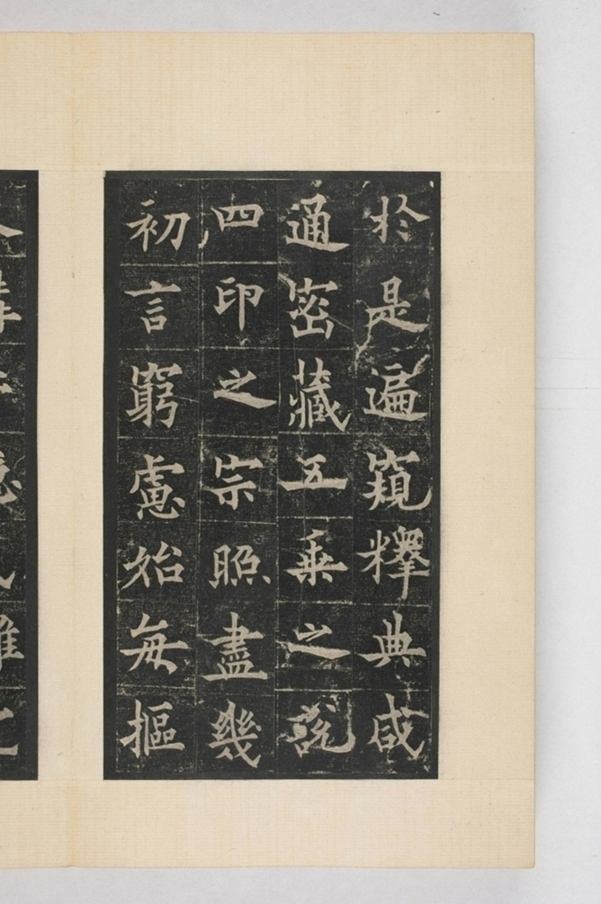 於是遍窺釋典咸
通密藏五乗之說
四印之宗照盡幾
初言窮慮始每摳